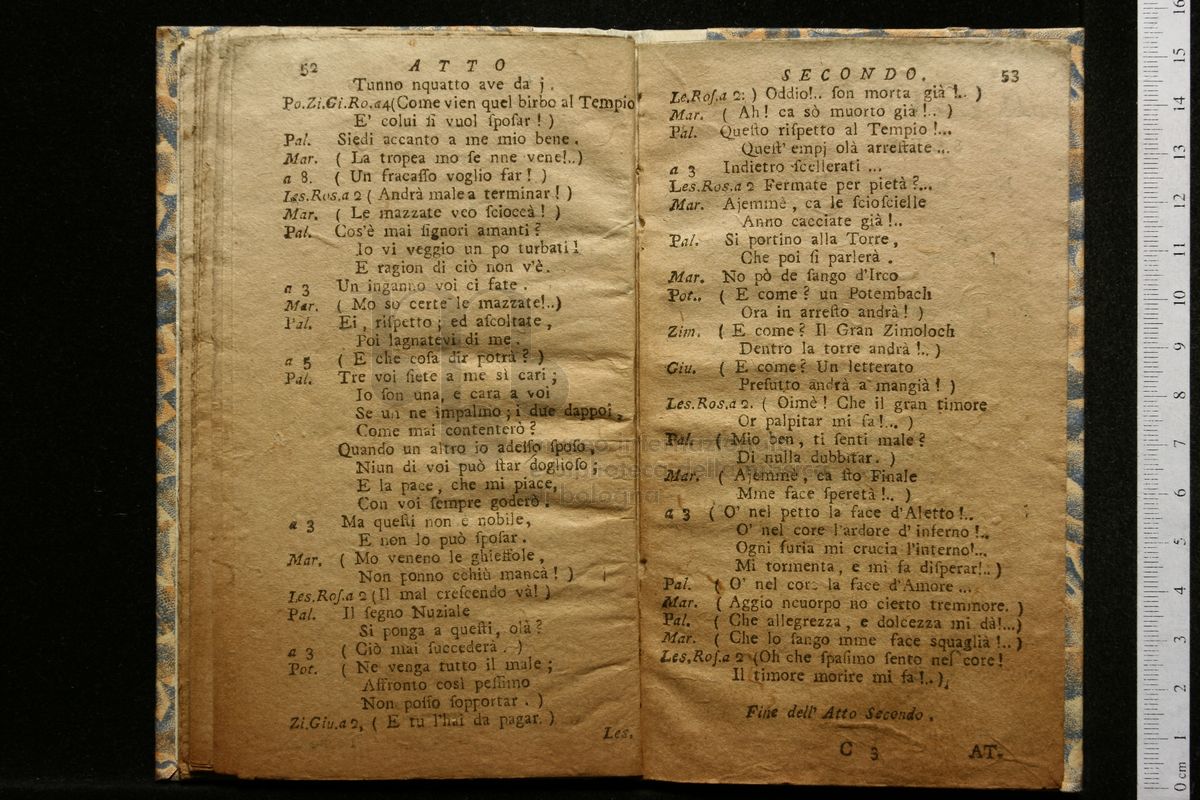 52 ATTO
Tunno nquatto ave da j.
Po.Zi.Gi.Ro.a4 (Come vien quel birbo al Tempio
E' colui si vuol ſpoſar! )
Pal. Siedi accanto a me mio bene.
Mar. ( La tropea mo ſe nne vene!..)
a 8. ( Un fracaſſo voglio far! )
Les.Ros.a 2 ( Andrà male a terminar! )
Mar. ( Le mazzate veo ſcioccà! )
Pal. Cos'è mai ſignori amanti?
Io vi veggio un po turbati!
E ragion di ciò non v'è.
a 3 Un inganno voi ci fate.
Mar. ( Mo so certe le mazzate!..)
Pal. Ei, riſpetto; ed aſcoltate,
Poi lagnatevi di me.
a 5 ( E che coſa dir potrà? )
Pal. Tre voi ſiete a me sì cari;
Io ſon una, e cara a voi
Se un ne impalmo; i due dappoi,
Come mai contenterò?
Quando un altro io adeſſo ſpoſo,
Niun di voi può ſtar doglioſo;
E la pace, che mi piace,
Con voi ſempre goderò.
a 3 Ma queſti non è nobile,
E non lo può ſpoſar.
Mar. ( Mo veneno le ghieſſole,
Non ponno cchiù mancà! )
Les.Roſ.a 2 (Il mal creſcendo và! )
Pal. Il ſegno Nuziale
Si ponga a queſti, olà?
a 3 ( Ciò mai ſuccederà. )
Pot. ( Ne venga tutto il male;
Affronto così peſſimo
Non poſſo ſopportar. )
Zi.Giu.a 2, ( E tu l'hai da pagar. )
Les.
SECONDO. 53
Le.Roſ.a 2: ) Oddio!.. ſon morta già!.. )
Mar. ( Ah! ca sò muorto già!.. )
Pal. Queſto riſpetto al Tempio!...
Queſt' empj olà arreſtate...
a 3 Indietro ſcellerati...
Les.Ros.a 2 Fermate per pietà?...
Mar. Ajemmè, ca le ſcioſcielle
Anno cacciate già!..
Pal. Si portino alla Torre,
Che poi ſi parlerà.
Mar. No pò de ſango d'Irco
Pot.. ( E come? un Potembach
Ora in arreſto andrà! )
Zim. ( E come? Il Gran Zimoloch
Dentro la torre andrà!.. )
Giu. ( E come? Un letterato
Preſutto andrà a mangià! )
Les.Ros.a 2. ( Oimè! Che il gran timore
Or palpitar mi fa!... )
Pal. ( Mio ben, ti ſenti male?
Di nulla dubbitar. )
Mar. ( Ajemmè, ca ſto Finale
Mme face ſperetà!.. )
a 3 ( O' nel petto la face d'Aletto!..
O' nel core l'ardore d'inferno!..
Ogni furia mi crucia l'interno!...
Mi tormenta, e mi fa diſperar!..)
Pal. ( O' nel core la face d'Amore...
Mar. ( Aggio ncuorpo no cierto tremmore. )
Pal. ( Che allegrezza, e dolcezza mi dà!...)
Mar. ( Che lo ſango mme face squaglià!.. )
Les.Roſ.a 2 (Oh che ſpaſimo ſento nel core!
Il timore morire mi fa!..)
Fine dell' Atto Secondo.
C 3 AT-